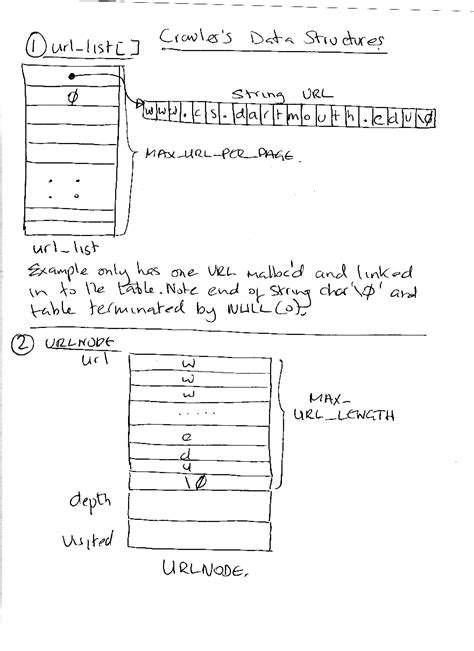 Crawler's Data Structures
① url_list[]
Ø
String URL
www.cs.dartmouth.edu\Ø
MAX_URL_PER_PAGE.
url_list
Example only has one URL malloc'd and linked
in to the table. Note end of string char '\Ø' and
table terminated by NULL (0).
② URLNODE
url
w
w
w
.....
e
d
u
\Ø
MAX_
URL_LENGTH
depth
visited
URLNODE.